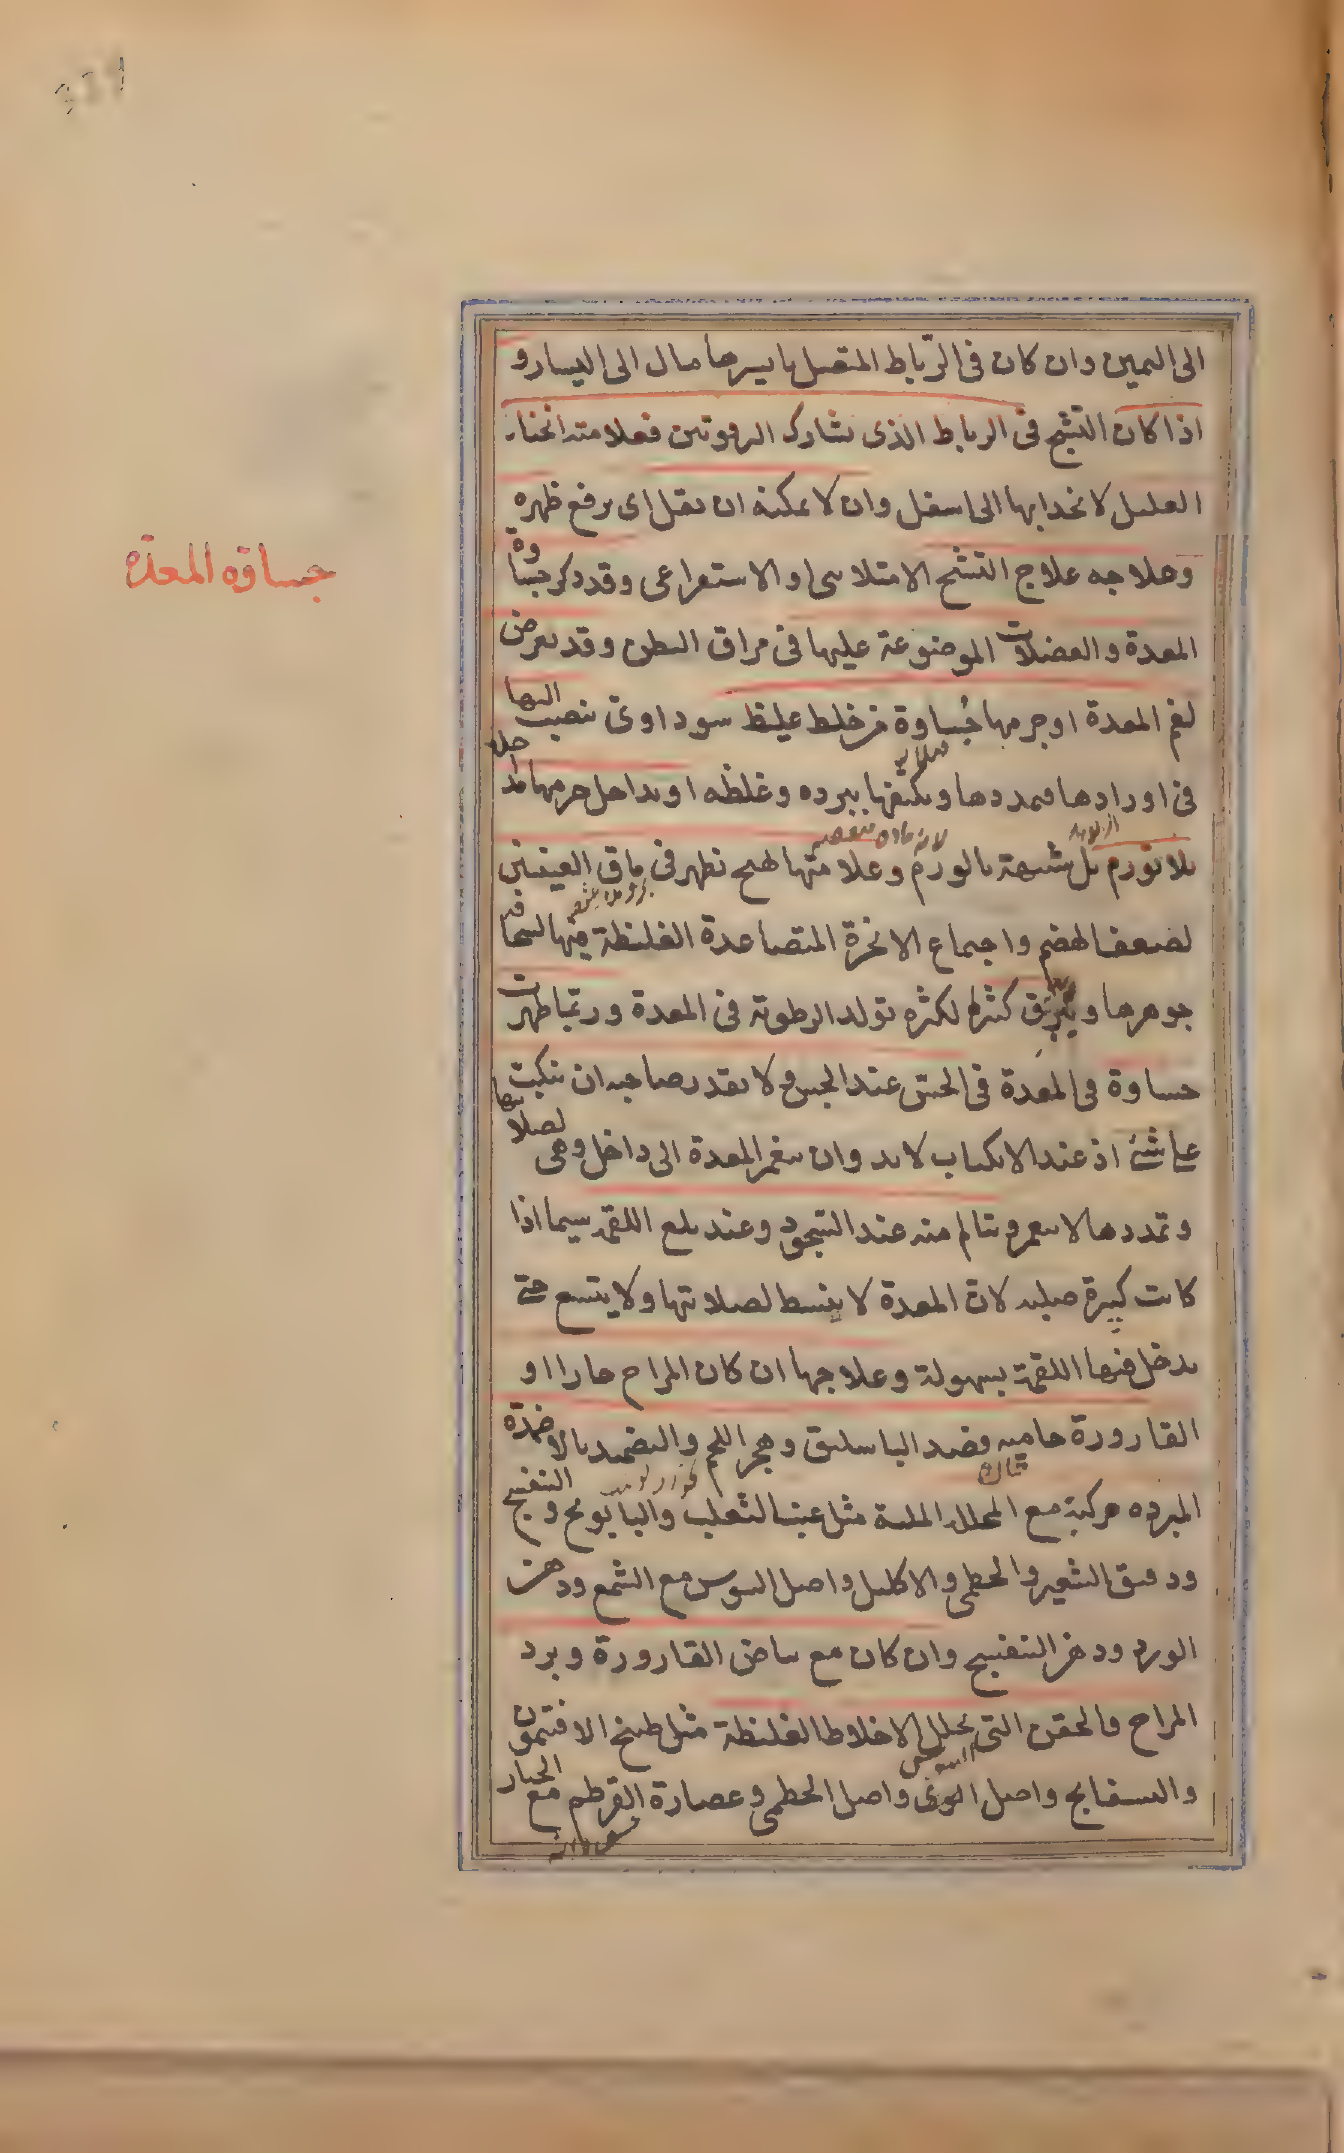 الى اليمين وان كان فى الرّباط المتصل بايسرها مال الى اليسار و
اذا كان التشنج فى الرباط الذى يشارك الرهوتين فعلامته انحناء
العليل لانجذابها الى اسفل وان لا يمكنه ان يقل اى يرفع ظهره
وعلاجه علاج التشنج الامتلائى او الاستفراغى وقد ذكر جساوة
جساوة المعدة
المعدة والعضلات الموضوعة عليها فى مراق البطن وقد يعرض
لفم المعدة او جرمها جُساوة من خلط غليظ سوداوى ينصب اليها
فى اورادها فيمددها ويكثفها ببرده وغلظه او يداخل جرمها مداخلة
بلا تورم بل شبيهة بالورم وعلامتها تهيج يظهر فى ماق العينين
لضعف الهضم واجتماع الابخرة المتصاعدة الغليظة منها لسخافة
جوهرها و كثرة لكثرة تولد الرطوبة فى المعدة وربّما ظهرت
جساوة فى المعدة فى الحسّ عند الجس ولا يقدر صاحبه ان ينكب
على شىء اذ عند الانكباب لا بد وان ينغمز المعدة الى داخل وهى لصلابتها
وتمددها لا ينغمز ويتالم منه عند السجود وعند بلع اللقمه سيما اذا
كانت كبيرة صلبه لانّ المعدة لا ينبسط لصلابتها ولا يتسع حتى
يدخل فيها اللقمة بسهولة وعلاجها ان كان المزاج حارا او
القارورة حاميه فصد الباسليق وهجر اللحم والتضميد بالاضمدة
المبرده مركبة مع المحللة الملينة مثل عنب الثعلب والبابونج والبنفسج
ودقيق الشعير والخطمى والاكليل واصل السوس مع الشمع ودهن
الورد ودهن البنفسج وان كان مع بياض القارورة وبرد
المزاج فالحقن التى يحلل الاخلاط الغليظة مثل طبيخ الافتيمون
والبسفايج واصل واصل الخطمى وعصارة القرطم مع الخيار